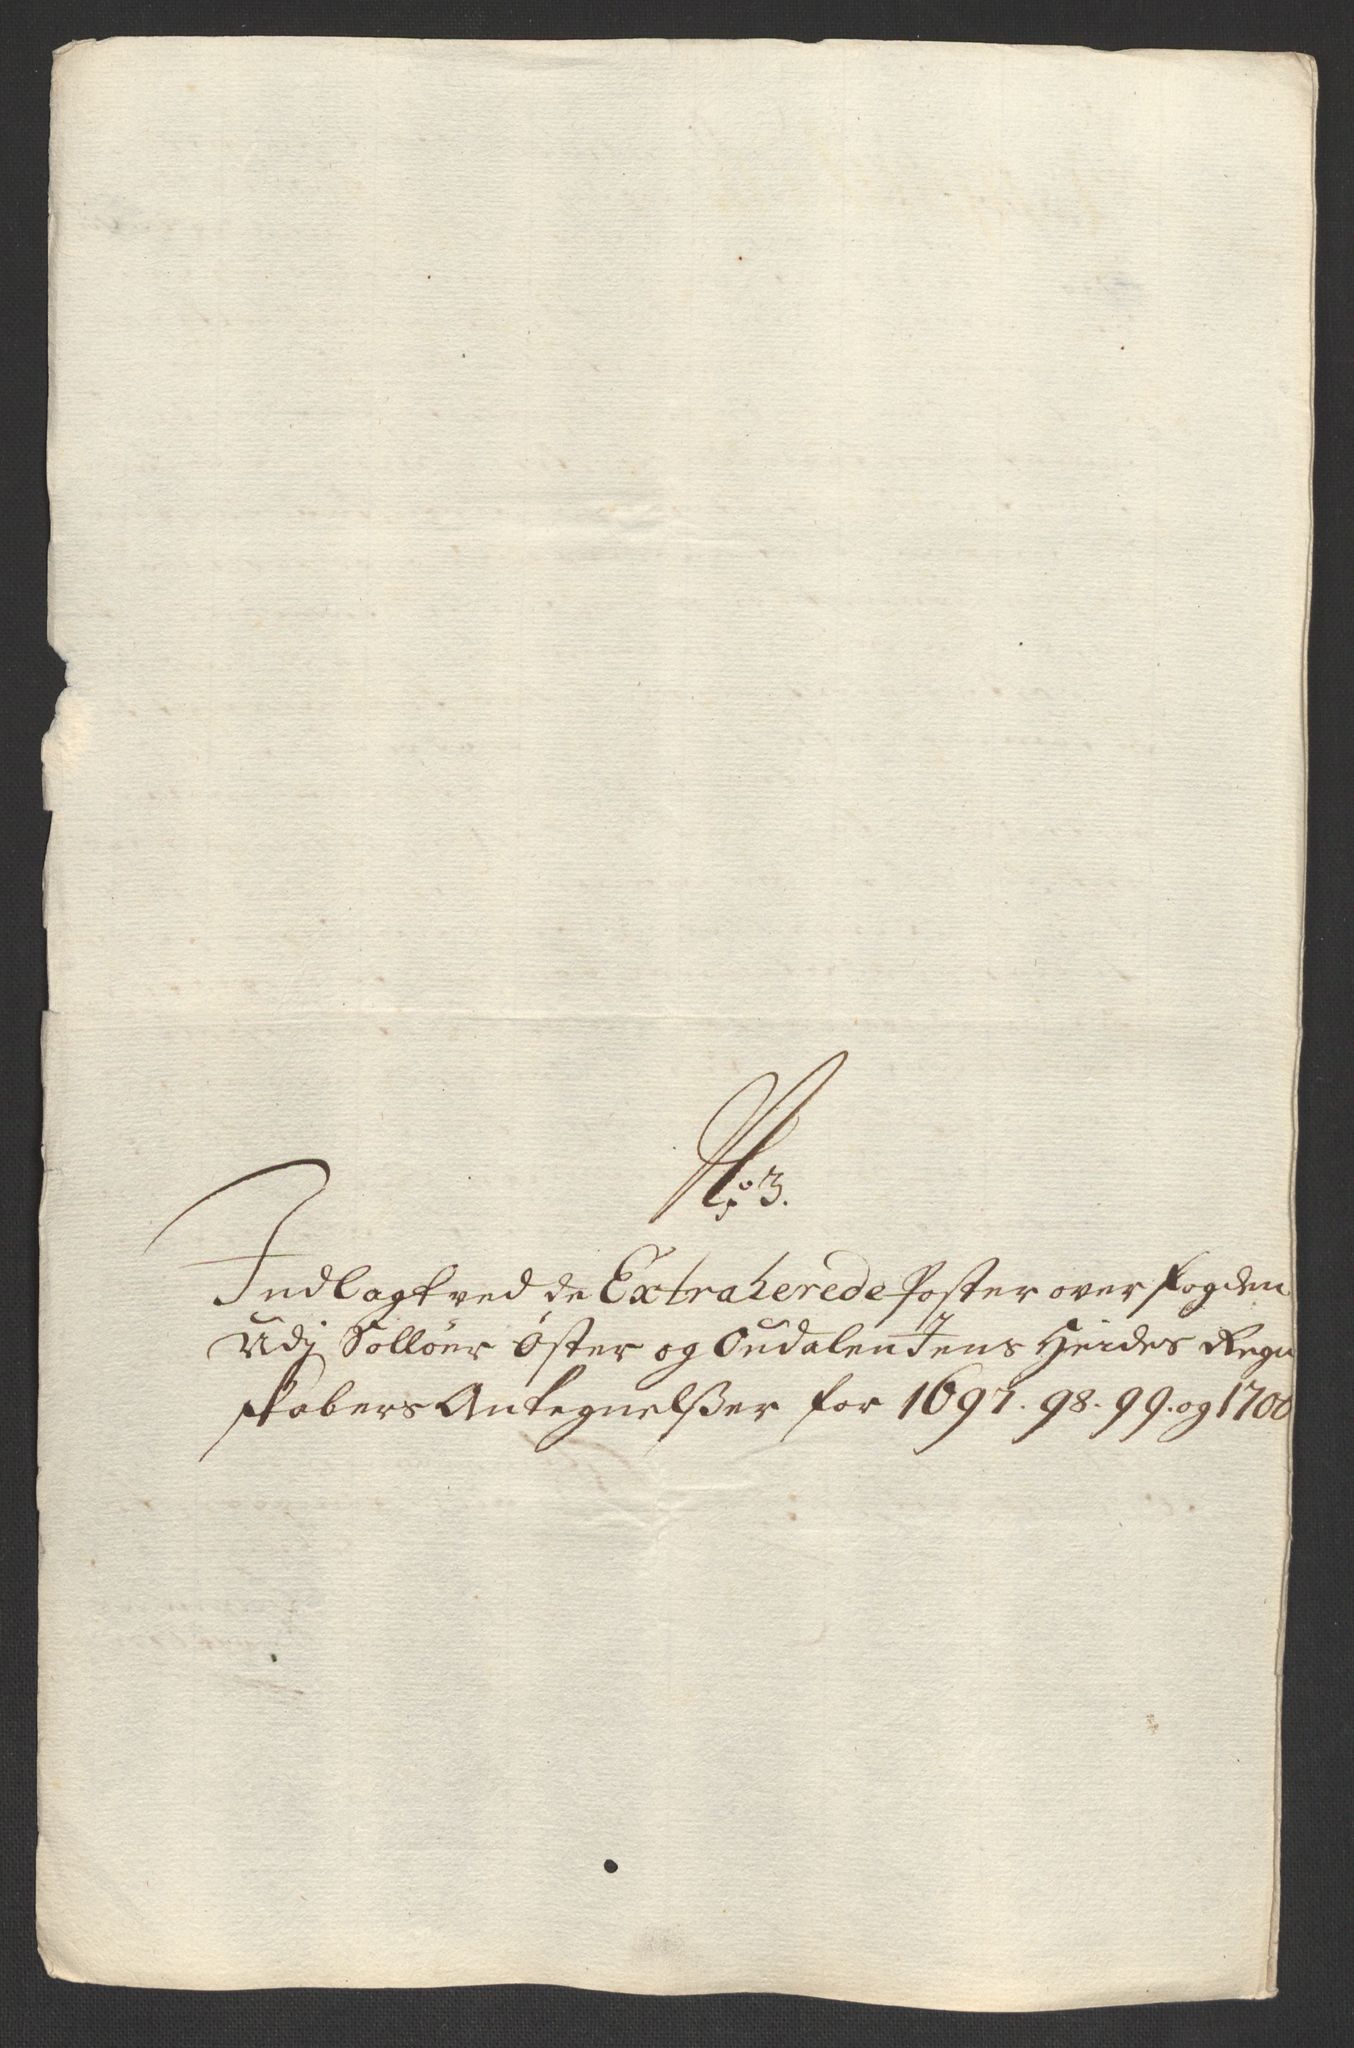 No: 3.
Indlagt ved de Extraherede Poster over fogden
Udj Solløer Øster og Oudalen Jens Heides Regn
skabers Antegnelsser for 1697. 98. 99. og 1700